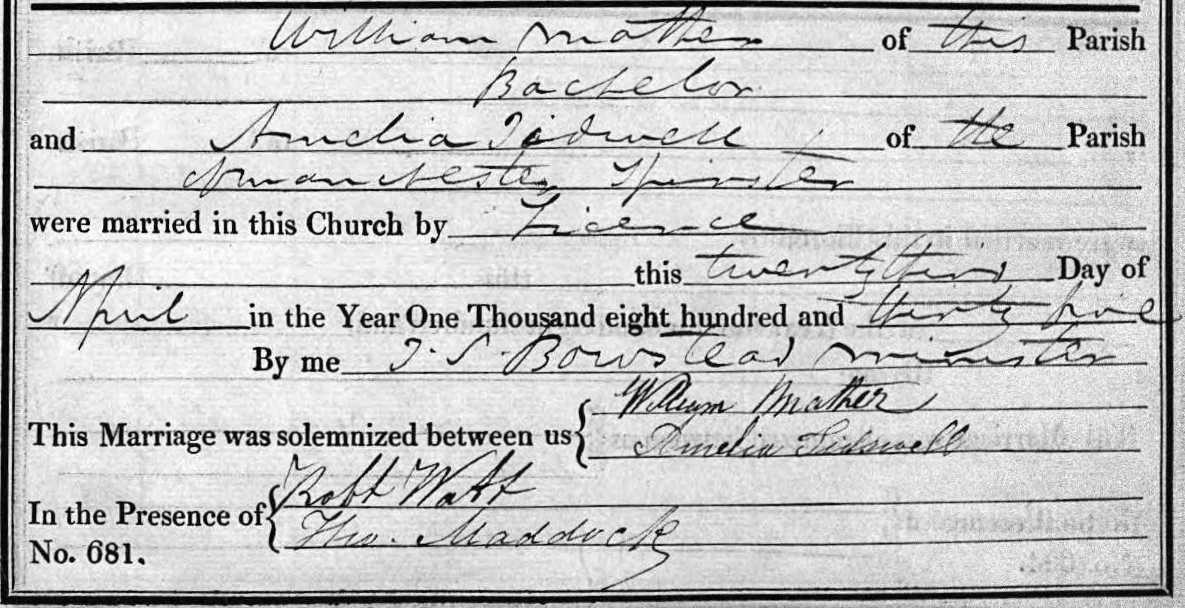 William Mather of this Parish
Bachelor
and Amelia Tidswell of the Parish
of Manchester Spinster
were married in this Church by Licence
this twenty third Day of
April in the Year One Thousand eight hundred and thirty five
By me T. S. Bowstead Minister
William Mather
This Marriage was solemnized between us
Amelia Tidswell
Robt Watt
In the Presence of
Thos. Maddock
No. 681.